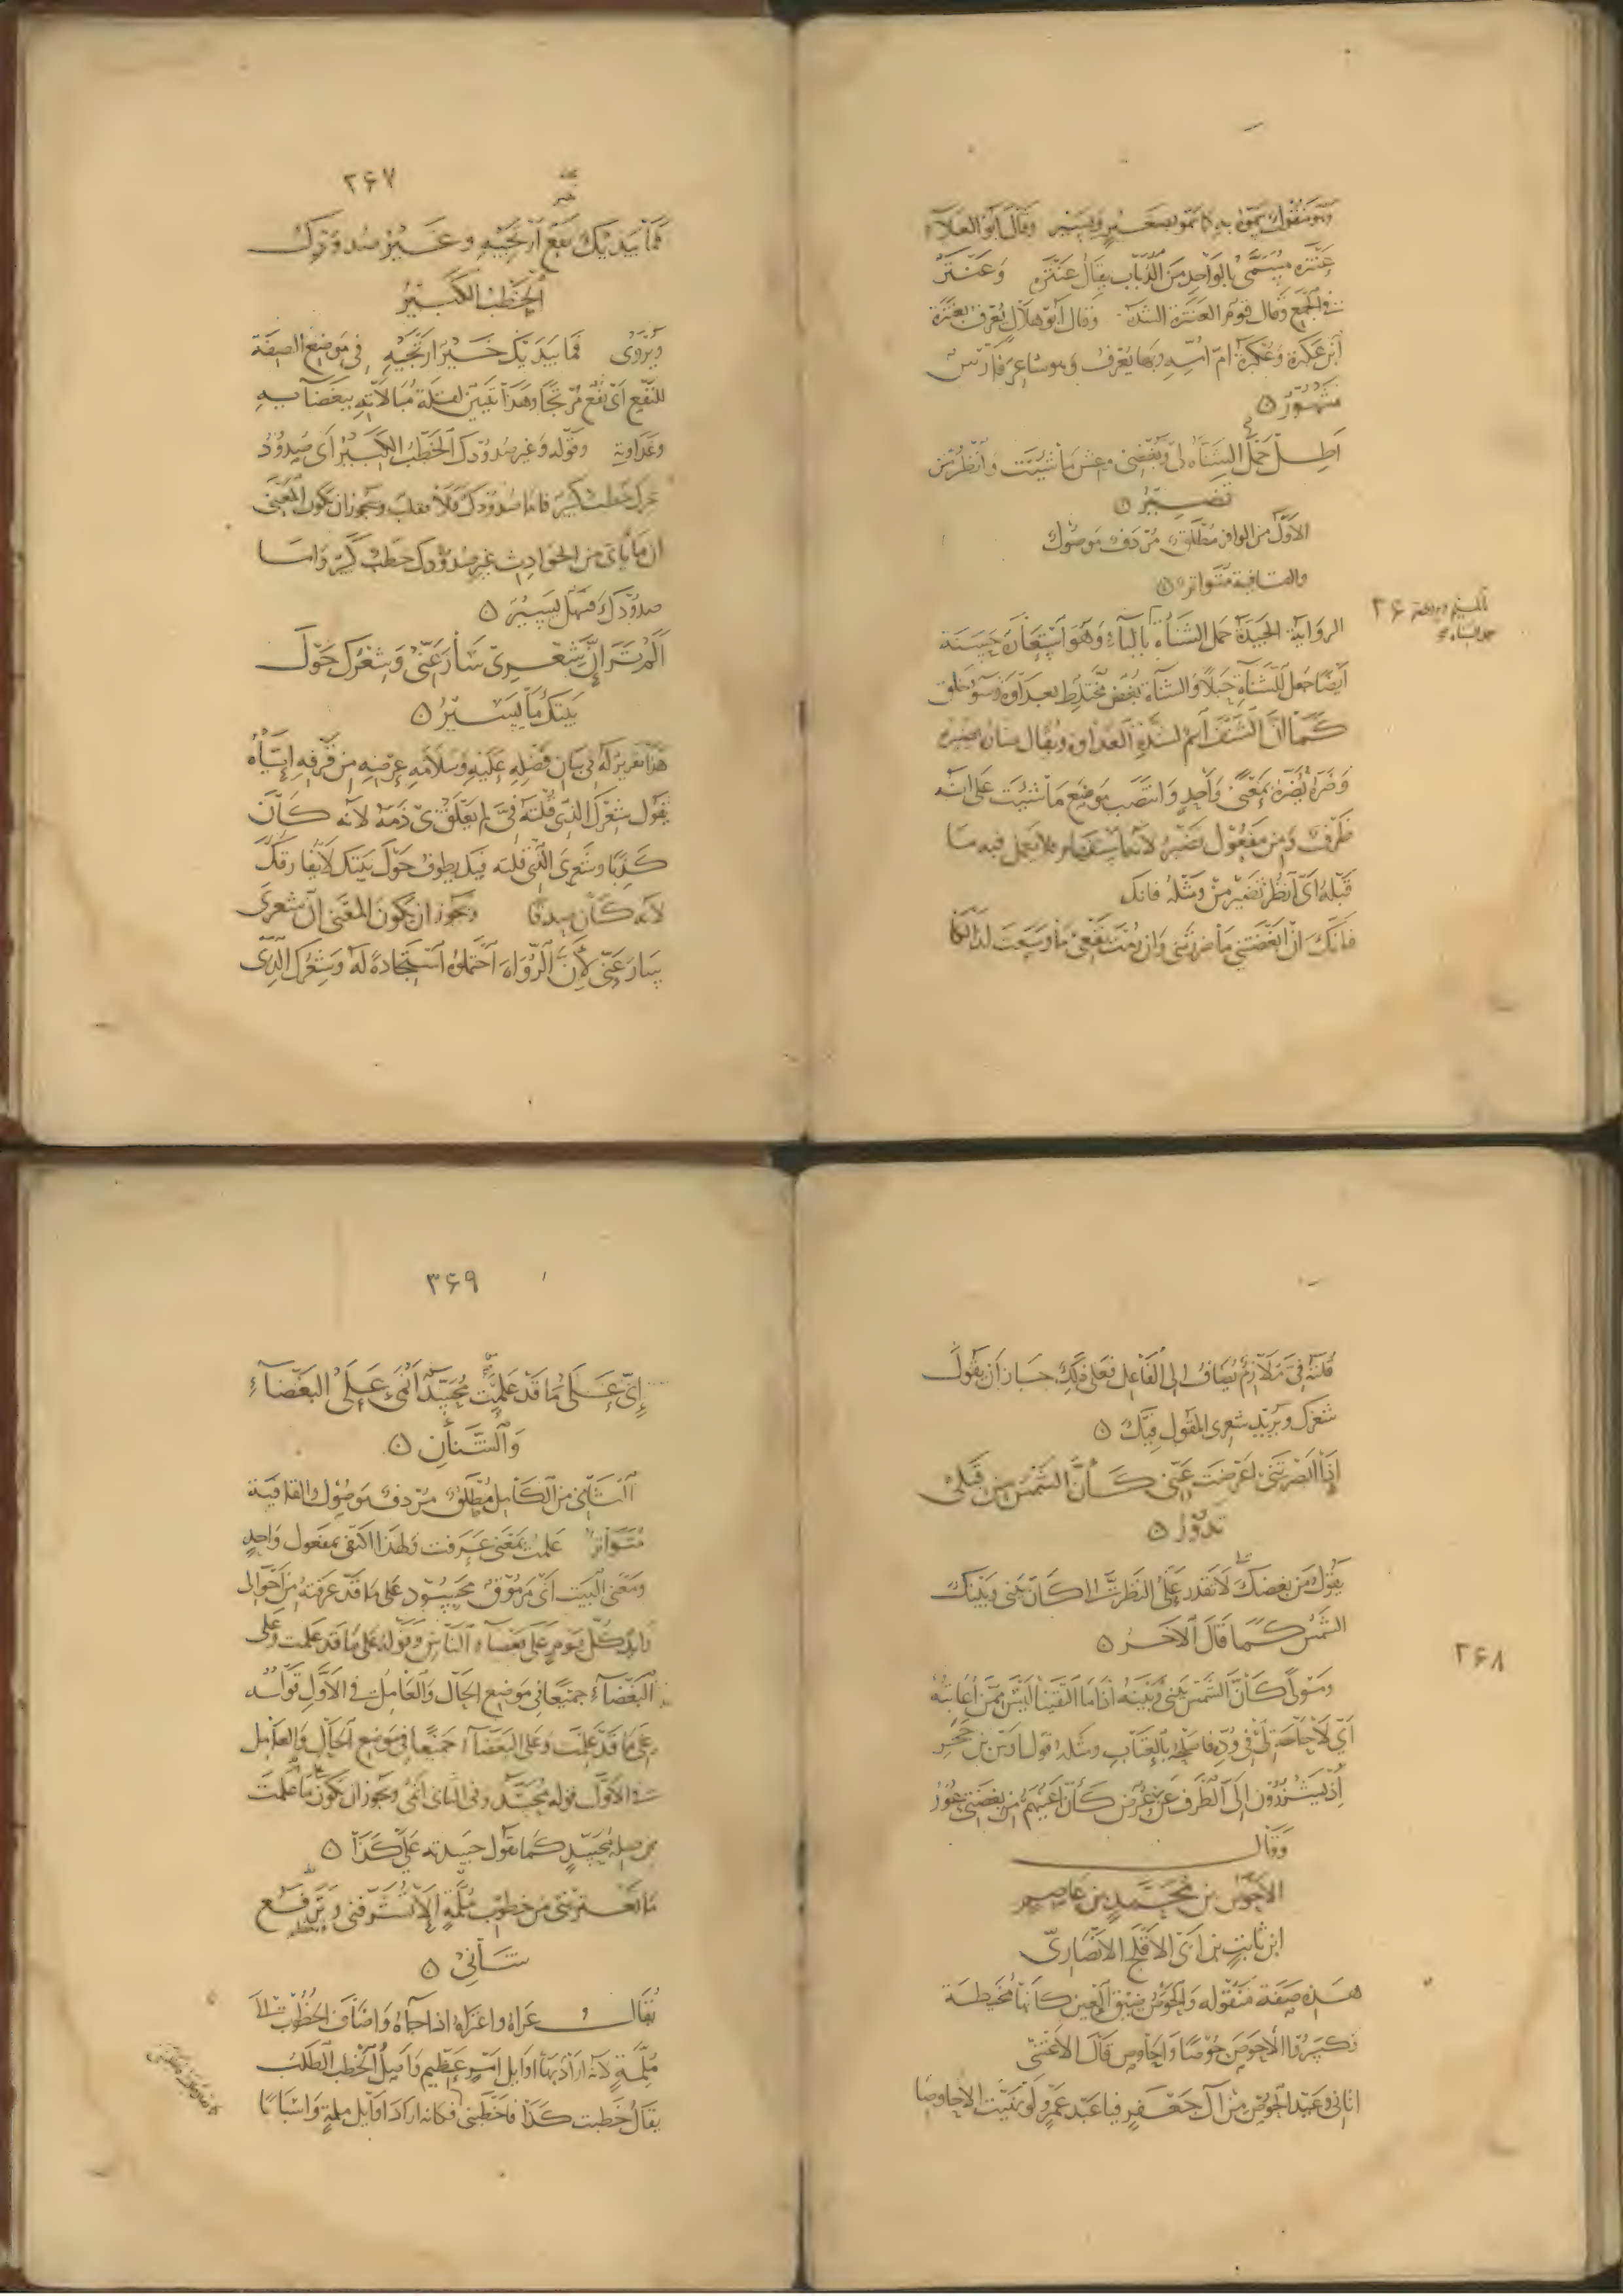 وهو منقول يموه به كما تموه بصغير وبشير وقال ابو العلاء
عنترة مسمى بالواحد من الذباب يقال عنترة وعنتر
في الجمع وقال قوم العنترة الشدة وقال ابو هلال يعرف بعنترة
ابن عكبرة وعكبرة ام امه وبها يعرف وهو شاعر فارس
مشهور
اطل حمل الشناءة لي وبغضي وعش ما شئت وانظر من
تضير
الاول من الوافر مطلق مردف موصول
والقافية متواتر
۲۶
الرواية الجيدة حمل الشناءة بالباء وهو استعارة حسنة
ايضا جعل للشناءة حبلا والشناءة بغض مختلط بعداوة وسوء خلق
كما ان الشنف اسم لشدة العداوة ويقال ضاره يضيره
وضره يضره بمعنى واحد وانتصب موضع ما شئت على انه
ظرف ومن مفعول تضير لانه استفهام فلا يعمل فيه ما
قبله اي انظر تضير من ومثله فانك
فانك ان ابغضتني ما ضررتني وان رمت نفعي ما وسعت لذالكا
۲۶۷
فما بيديك نفع ارتجيه وغير صدودك
الخطب الكبير
ويروى فما بيديك خير ارتجيه في موضع الصفة
للنفع اي نفع مرتجا وهذا تبيين لقلة مبالاته ببغضائه
وعداوته وقوله وغير صدودك الخطب الكبير اي صدود
غيرك خطب كبير فاما صدودك فلا ويجوز ان يكون المعنى
ان ما ياتي من الحوادث غير صدودك خطب كبير واما
صدودك فسهل يسير
الم تر ان شعري سار عني وشعرك حول
بيتك ما يسير
هذا تقرير له في بيان فضله عليه وسلامة عرضه من قرفه اياه
يقول شعرك الذي قلته في لم يعلق بي ذمه لانه كان
كذبا وشعري الذي قلته فيك يطوف حول بيتك لا يفارقك
لانه كان صدقا ويجوز ان يكون المعنى ان شعري
سار عني لان الرواة احتملوه استجادة له وشعرك الذي
قلته في ملازم يضاف الى الفاعل فعلى ذلك جاز ان يقول
شعرك ويريد شعري المقول فيك
اذا ابصرتني اعرضت عني كأن الشمس من قبلي
تدور
يقول من بغضك لا تقدر على النظر الي كان بيني وبينك
الشمس كما قال الآخر
۲۶۸
ومولى كأن الشمس بيني وبينه اذا ما التقينا ليس ممن اعاتبه
اي لا حاجة لي في وده فاصلحه بالعتاب ومثله قول اوس بن حجر
اذ يشزرون الي الطرف عن عرض كأن اعينهم من بغضتي عور
وقال
الاحوص بن محمد بن عاصم
ابن ثابت بن ابي الاقلح الانصاري
هذه صفة منقوله والحوص ضيق العين كانها مخيطة
وكسروا الاحوص حوصا واحاوص قال الاعشى
اتاني وعيد الحوص من آل جعفر فيا عبد عمرو لو نهيت الاحاوصا
۳۶۹
إني على ما قد علمت محسد أنمي على البغضاء
والشنآن
الثاني من الكامل مطلق مردف موصول والقافية
متواتر علمت بمعنى عرفت ولهذا اكتفى بمفعول واحد
ومعنى البيت اي مرموق محسود على ما قد عرفته من احوالي
زايد كل يوم على بغضاء الناس وقوله على ما قد علمت وعلى
البغضاء جميعا في موضع الحال والعامل في الاول قوله
على ما قد علمت وعلى البغضاء جميعا في موضع الحال والعامل
في الاول قوله محسد وفي الثاني انمي ويجوز ان يكون ما علمت
من صلة محسد كما تقول حسدته على كذا
ما تعتريني من خطوب ملمة الا تشرفني وترفع
شاني
يقال عراه واعتراه اذا جاءه واضاف الخطوب الى
ملمة لانه اراد بها اوايل امر عظيم واصل الخطب الطلب
يقال خطبت كذا فاخطبني فكانه اراد اوايل ملمة واسبابا